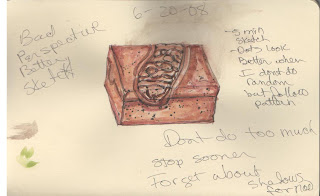 6-20-08
Bad
Perspective
Better
Sketch
-5 min
Sketch
-Dots look
Better when
I dont do
random
but follow
pattern
Dont do too much
stop sooner
Forget about shadows
for now